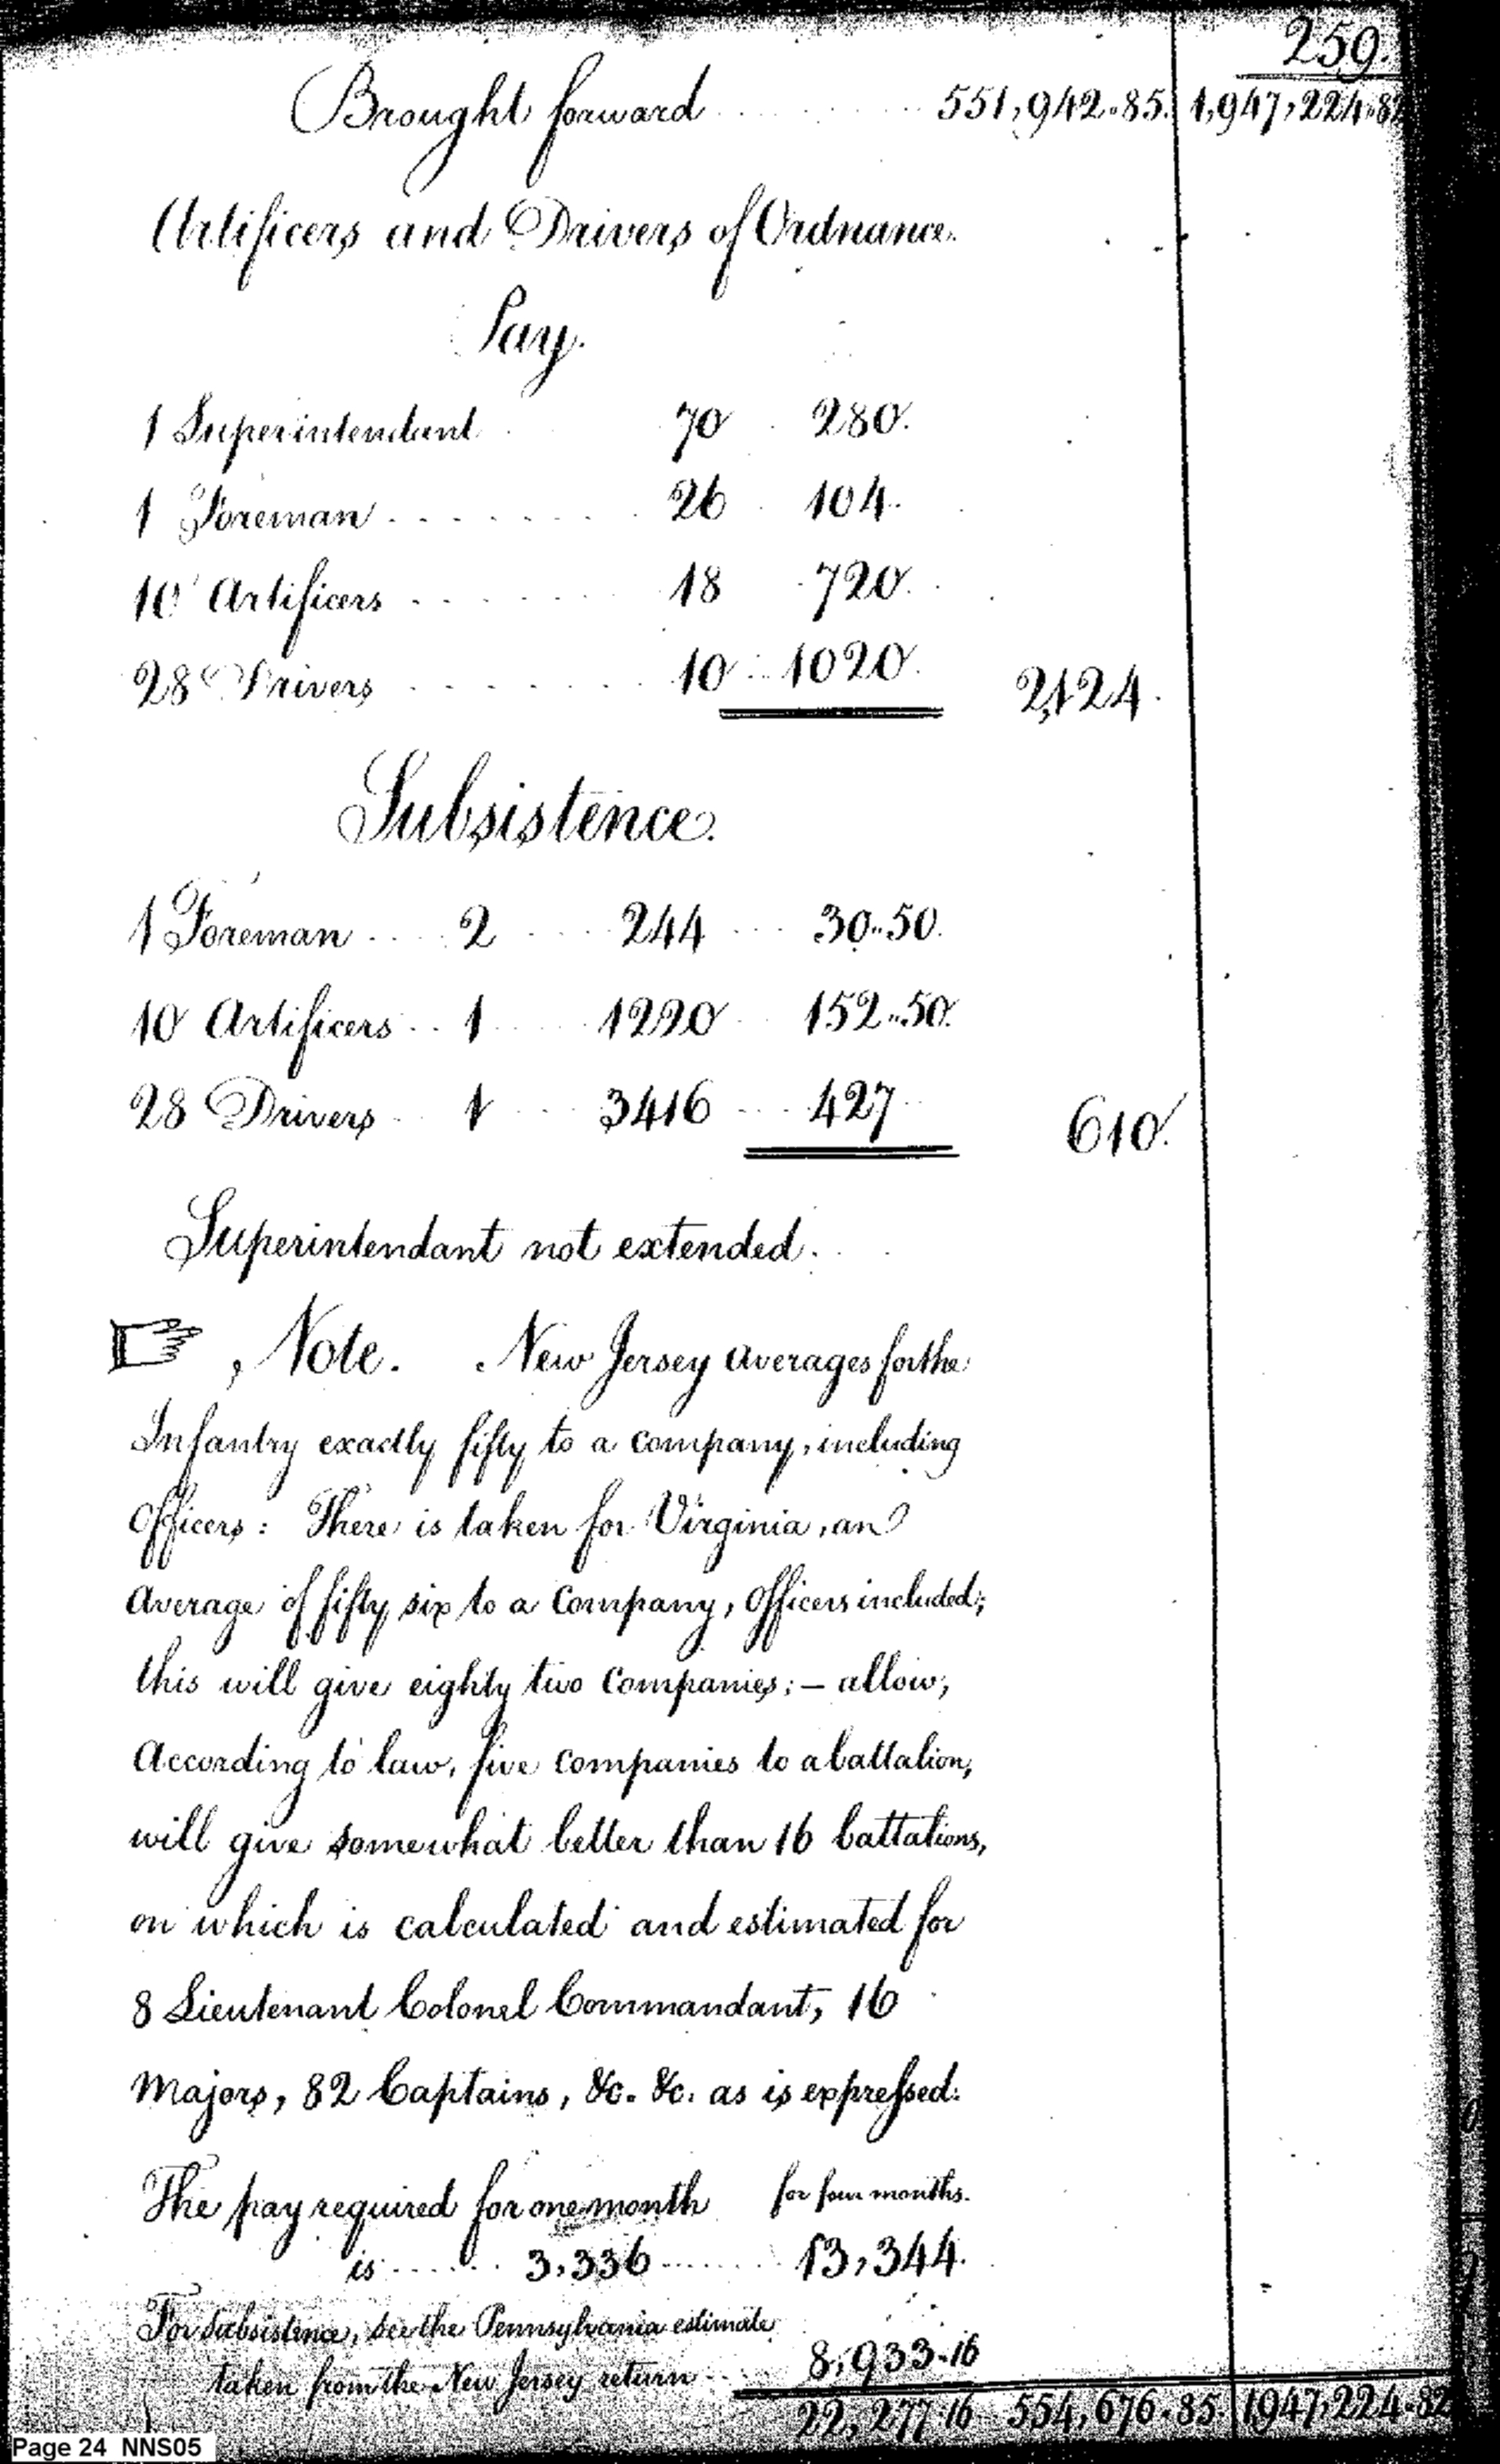 259.
Brought forward ........ 551,942.85. 1,947,224.82
Artificers and Drivers of Ordnance.
Pay.
1 Superintendant 70 280.
1 Foreman ........ 26 104.
10 Artificers ....... 18 720.
28 Drivers ....... 10 1020. 2,124.
Subsistence.
1 Foreman .... 2 .... 244 ... 30..50.
10 Artificers .. 1 .... 1220 ... 152..50.
28 Drivers .. 1 ... 3416 .... 427 .. 610.
Superintendant not extended.
☞ Note. New Jersey averages for the
Infantry exactly fifty to a company, including
Officers: There is taken for Virginia, an
average of fifty six to a Company, Officers included;
this will give eighty two Companies; — allow,
According to law, five Companies to a battalion,
will give somewhat better than 16 battalions,
on which is calculated and estimated for
8 Lieutenant Colonel Commandant, 16
Majors, 82 Captains, &c. &c. as is expressed.
The pay required for one month for four months.
is ....... 3,336 ....... 13,344.
For Subsistence, see the Pennsylvania estimate
taken from the New Jersey return ... 8,933.16
22,277.16 554,676.85. 1947,224.82
Page 24 NNS05